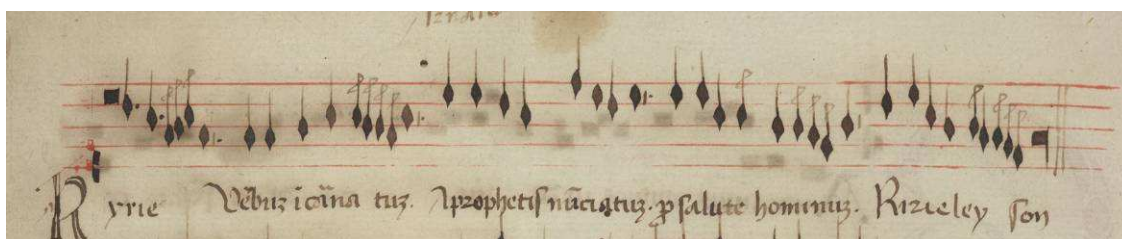 Kyrie Vẽbuz ĩcãna tuz. Aprophetis nũciatuz. ꝓ salute hominuz. Kirieley son